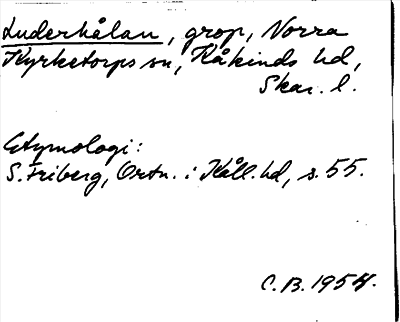 Luderhålan, grop, Norra
Kyrketorps sn, Kåkinds hd,
Skar. l.
Etymologi:
S. Friberg, Ortn. i Kåll. hd, s. 55.
C.B. 1954.